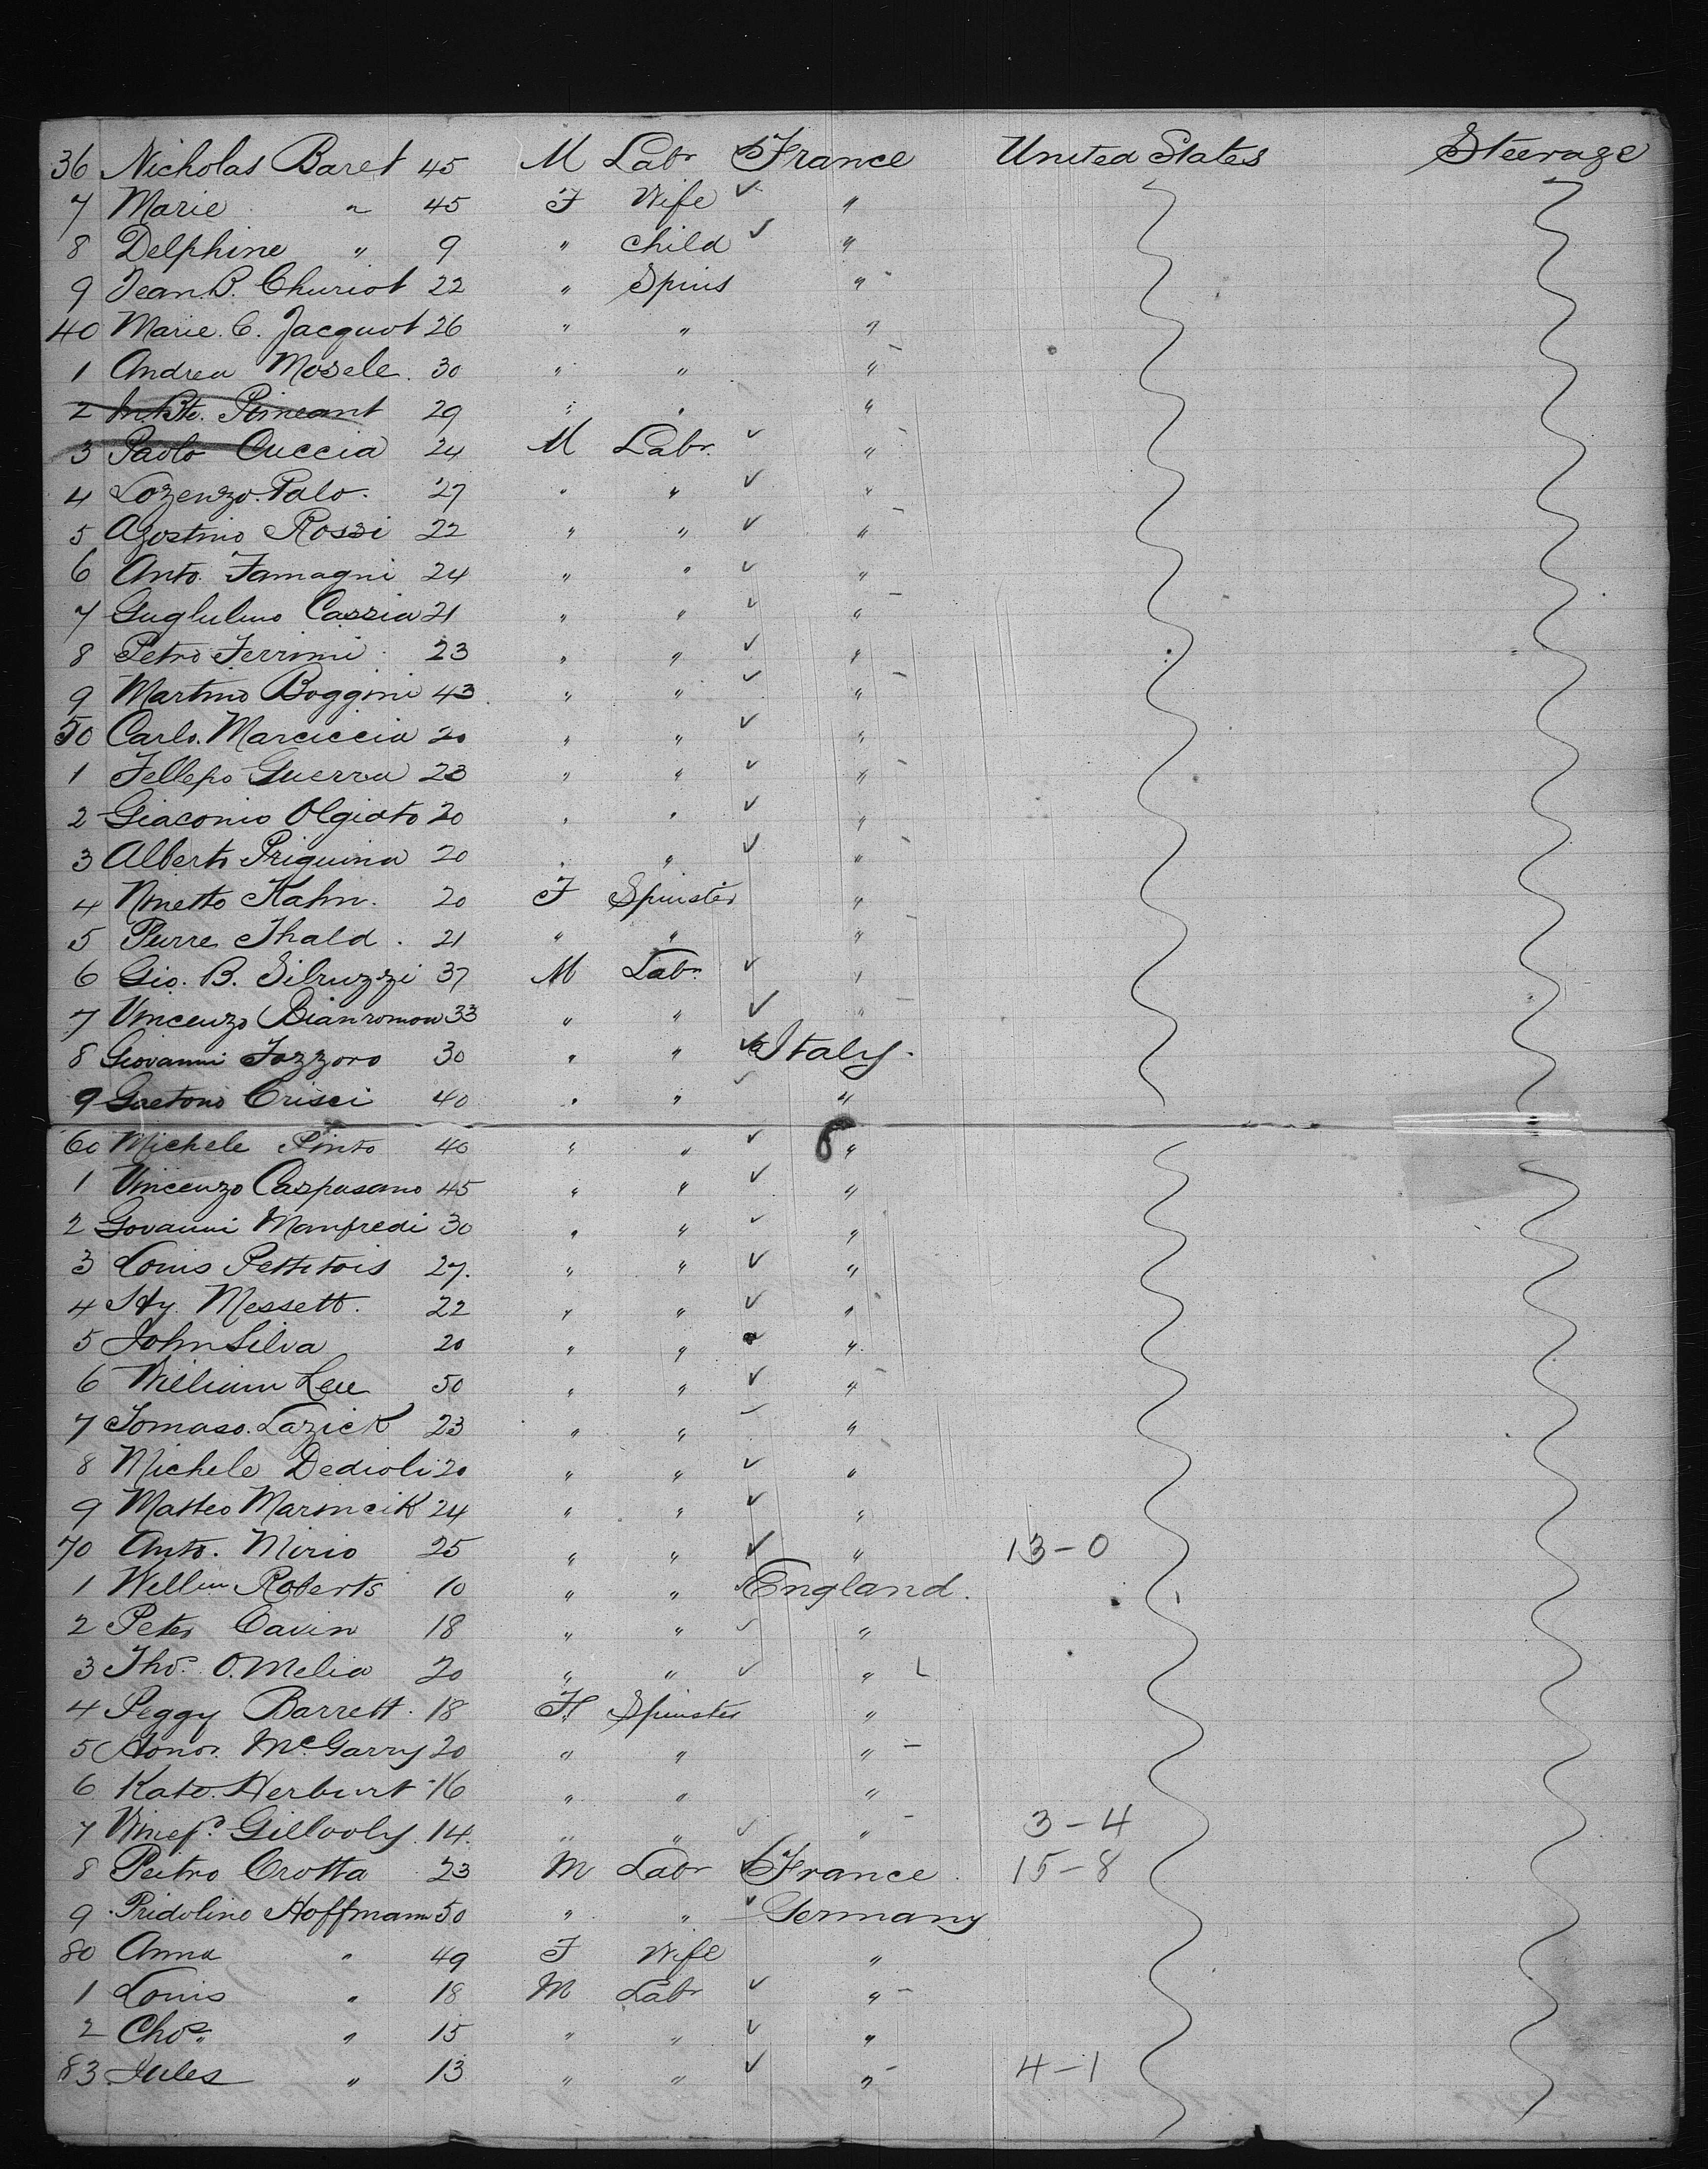 36 Nicholas Baret 45 M Labr France United States Steerage
7 Marie " 45 F Wife "
8 Delphine " 9 " child "
9 Jean B. Churiot 22 " Spins "
40 Marie C. Jacquot 26 " " "
1 Andrea Mosele 30 " " "
2 29 " " "
3 Paolo Cuccia 24 M Labr "
4 Lozenzo Palo 27 " " "
5 Agostino Rossi 22 " " "
6 Anto. Famagni 24 " " "
7 Guglulmo Cassia 21 " " "
8 Petro Ferrini 23 " " "
9 Martino Boggini 43 " " "
50 Carlo. Marciccia 20 " " "
1 Fellepo Guerra 23 " " "
2 Giacomo Olgiato 20 " " "
3 Alberto Priguina 20 " " "
4 Ninetto Kahn. 20 F Spinster "
5 Pierre Thald. 21 " " "
6 Gio. B. Silruzzi 37 M Labr "
7 Vincenzo Bianromon 33 " " "
8 Giovanni Fozzoro 30 " " Italy.
9 Gaetono Crisci 40 " " "
60 Michele Pinto 40 " " 8 "
1 Vincenzo Caspasano 45 " " "
2 Govanni Manfredi 30 " " "
3 Louis Pettitois 27. " " "
4 Hy. Messett. 22 " " "
5 John Silva 20 " " "
6 William Leu 50 " " "
7 Tomaso. Lazick 23 " " "
8 Michele Dedioli 20 " " "
9 Matteo Marincik 24 " " "
70 Anto. Mirio 25 " " " 13-0
1 Willm Roberts 10 " " England.
2 Peter Cavin 18 " " "
3 Thos. O.Melia 20 " " "
4 Peggy Barrett. 18 F Spinster "
5 Honor. McGarry 20 " " "
6 Kate. Herburt 16 " " "
7 Winefd. Gillooly. 14. " " " 3-4
8 Peitro Crotta 23 M Labr France 15-8
9 Fridolino Hoffmann 50 " " Germany
80 Anna " 49 F Wife "
1 Louis " 18 M Labr "
2 Chas. " 15 " " "
83 Jules " 13 " " " 4-1